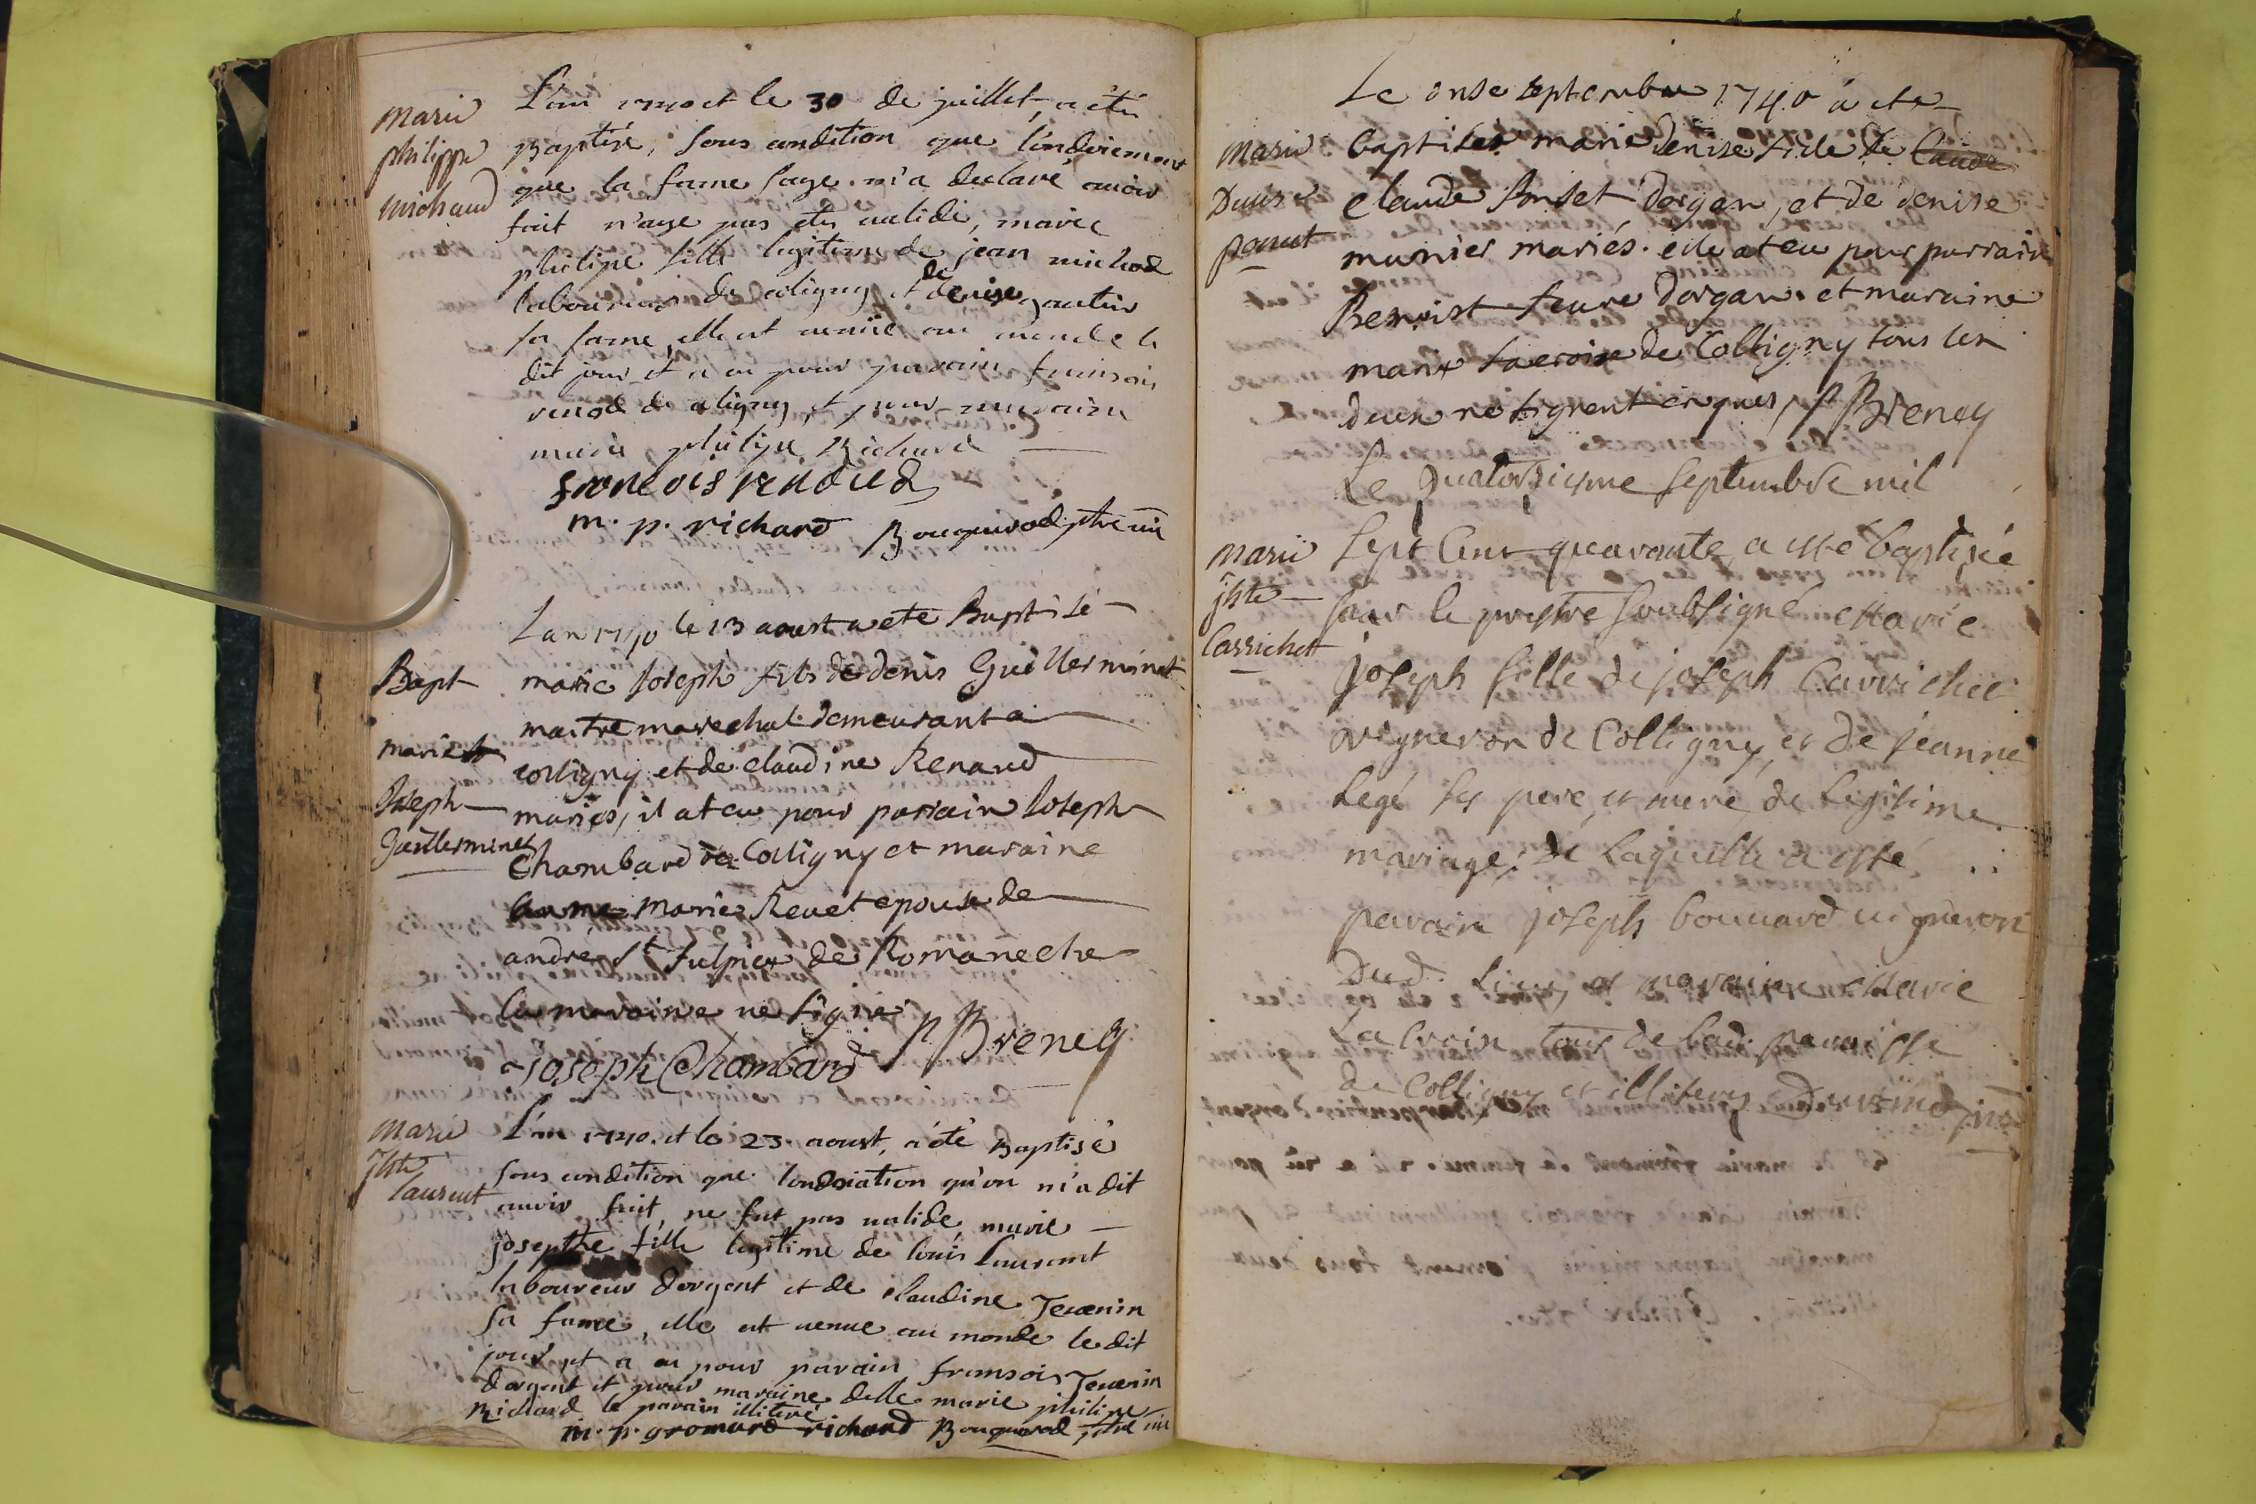 marie
philippe
michaud
L'an 1740 et le 30 de juillet, a été
Baptisé, sous condition que l'ondoiement
que la fame sage m'a declaré, auoir
fait n'aye pas été ualide, marie
philipe fille legitime de jean michod
laboureur de coligny et de denise gautier
sa fame, elle est uenüe au monde le
dit jour et a eu pour parain fransois
renod de coligny et pour maraine
marie philipe Richard
francois renoued
m. p. richard Bouquerod ptre uic
Bapt
marie
Joseph
Guillerminet
Lan 1740 le 13 aoust a ete Baptisé
marie Joseph fils de denis Guillerminet
maitre marechal demeurant a
colligny et de claudine Renaud
mariés, il at eu pour parrain Joseph
Chambard de Colligny et maraine
anne marie Reuet epouse de
andre St Sulpice de Romaneche
la maraine ne signe P Breney
Joseph Chambard
marie
jhte
laurent
L'an 1740. et le 23. aoust, a été Baptisé
sous condition que londoiation qu'on m'a dit
auoir fait, ne fut pas ualide, marie
josepthe fille legitime de louis laurent
laboureur d'orgent et de claudine Teuenin
sa fame, elle est uenue au monde le dit
jour et a eu pour parain fransois Teuenin
dorgent et pour maraine delle marie philipe
Richard le parain illiteré
m. p. gromard richard Bouquerod ptre uic
marie
Denise
ponset
Le onse septembre 1740 a ete
baptisée marie denise fille de Claude
claude Ponset dorgen, et de denise
munier mariés. elle at eu pour parrain
Benoist feure dorgan. et maraine
marie Lacroix de Colligny tous les
deux ne signent enquis, P Breney
marie
jhte
Carrichet
Le quatorsiesme septembre mil
sept cent quarante a esté baptisée
par le prestre soubsigné Marie
joseph fille de joseph Carrichet
vigneron de Colligny, et de jeanne
Legé ses pere, et mere de legitime
mariage; de laquelle a esté
parain joseph bouuard uigneron
Dud. Lieu, et maraine Marie
La Croix tous de lad. paroisse
de Colligny et illiterez